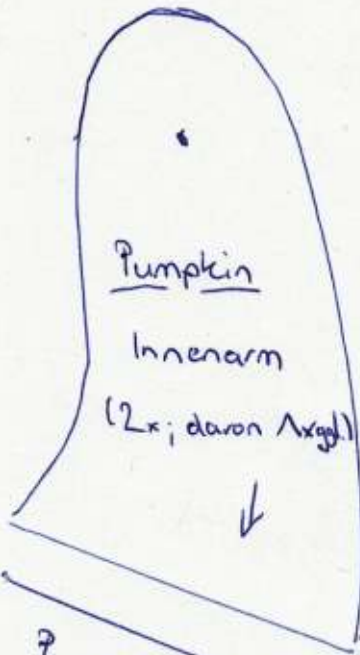 Pumpkin
Innenarm
(2x; davon 1xggl.)
P